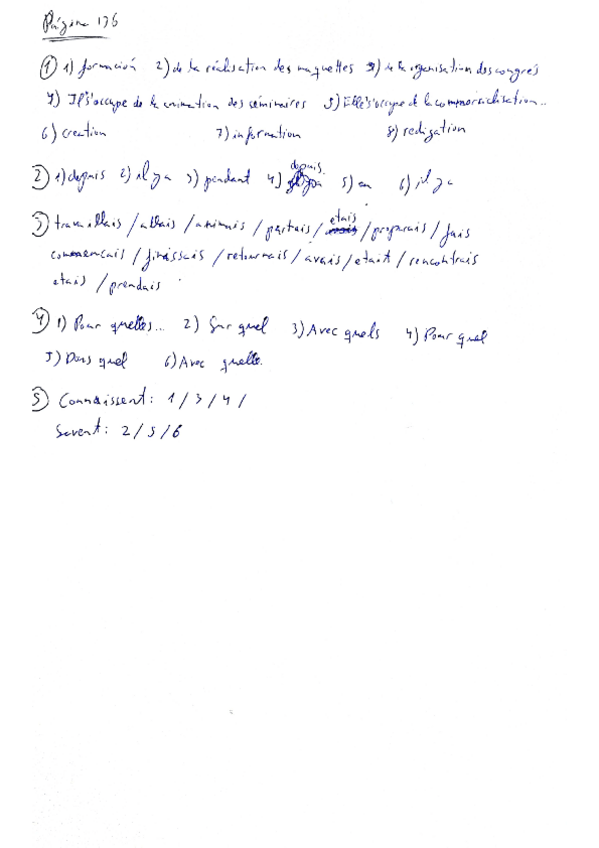 Página 136
① 1) formación 2) de la réalisation des maquettes 3) de la organisation des congrés
4) Il s'occupe de la animation des séminaires 5) Elle s'occupe de la commercialisation..
6) creation 7) information 8) redization
② 1) depuis 2) il ya 3) pendant 4) depuis 5) en 6) il ya
③ travaillais / allais / animais / partais / etais / preparais / fais
commencais / finissais / retournais / avais / etait / rencontrais
etais / prendais
④ 1) Pour quelles... 2) Sur quel 3) Avec quels 4) Pour quel
5) Dans quel 6) Avec quelle.
⑤ Connaissent: 1 / 3 / 4 /
Savent: 2 / 5 / 6